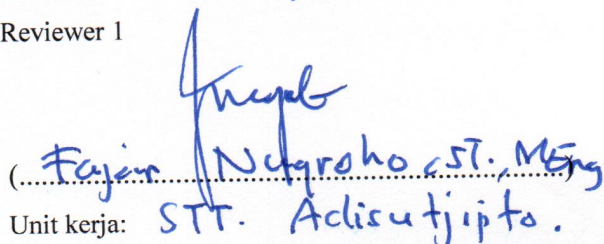 Reviewer 1
(Fajar Nugroho, ST., MEng)
Unit kerja: STT. Adisutjipto.